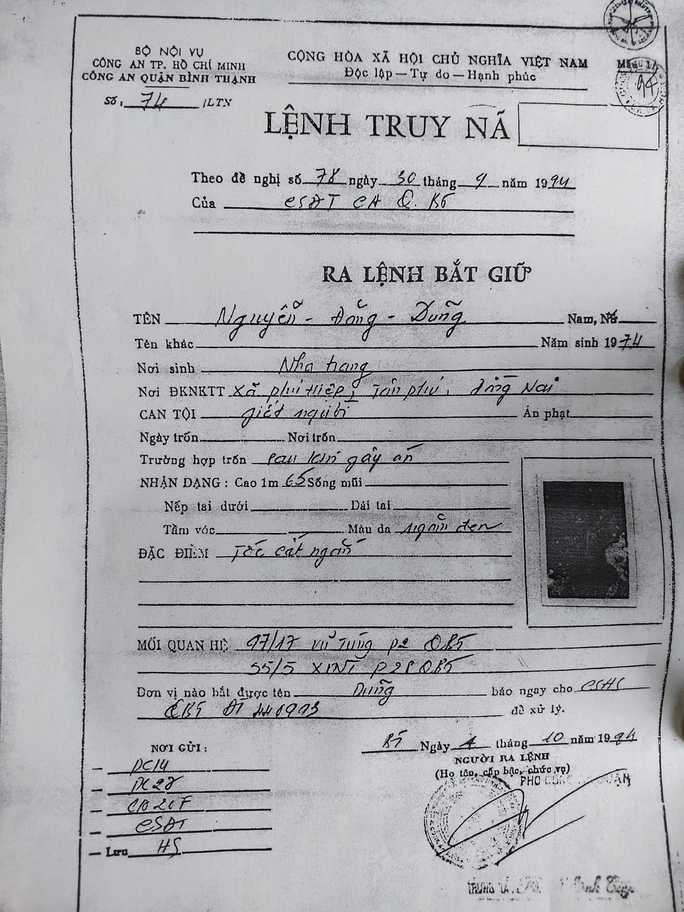 BỘ NỘI VỤ
CÔNG AN TP. HỒ CHÍ MINH
CÔNG AN QUẬN BÌNH THẠNH
Số: 74 /LTN
CỘNG HÒA XÃ HỘI CHỦ NGHĨA VIỆT NAM
Độc lập — Tự do — Hạnh phúc
94
LỆNH TRUY NÃ
Theo đề nghị số 78 ngày 30 tháng 9 năm 1994
Của CSĐT CA Q. BT
RA LỆNH BẮT GIỮ
TÊN Nguyễn - Đăng - Dũng Nam, Nữ
Tên khác Năm sinh 1974
Nơi sinh Nha trang
Nơi ĐKNKTT xã phú hiệp, Tân phú, đồng Nai
CAN TỘI giết người Án phạt
Ngày trốn Nơi trốn
Trường hợp trốn sau khi gây án
NHẬN DẠNG : Cao 1m 65 Sống mũi
Nếp tai dưới Dái tai
Tầm vóc Màu da ngăm đen
ĐẶC ĐIỂM Tóc cắt ngắn
MỐI QUAN HỆ 97/17 vũ tùng p2 QBT
55/5 XVNT P28 QBT
Đơn vị nào bắt được tên Dũng báo ngay cho CSHS
QBT ĐT 440993 để xử lý.
BT Ngày 4 tháng 10 năm 1994
NƠI GỬI :
— PC14
— PC28
—
— CSĐT
— Lưu HS
NGƯỜI RA LỆNH
(Họ tên, cấp bậc, chức vụ)
PHÓ CÔNG AN QUẬN
TRUNG TÁ